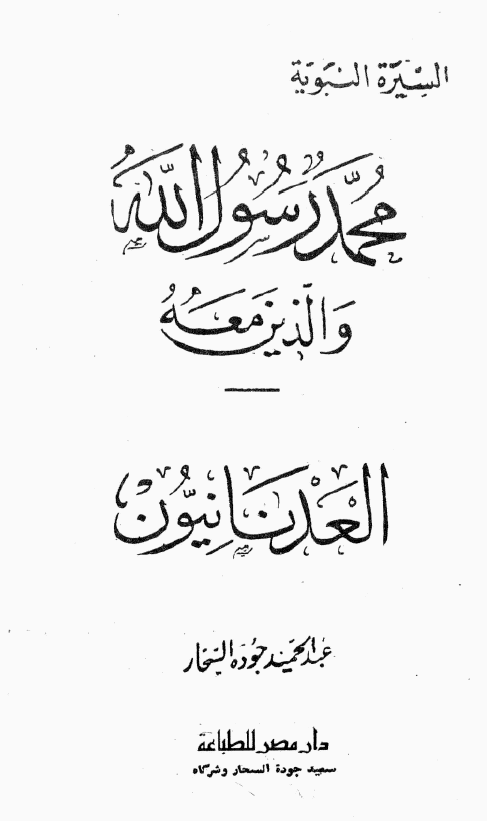 السِّيرَة النَّبَوِيَّة
مُحَمَّدٌ رَسُولُ اللّٰهِ
وَالَّذِينَ مَعَهُ
العَدْنَانِيُّونَ
عَبد الحَمِيد جُودَة السَّحَّار
دار مصر للطباعة
سعيد جودة السحار وشركاه